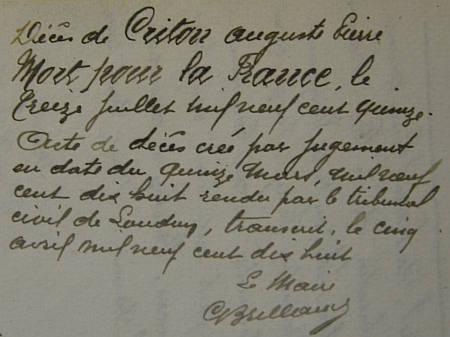 Décès de Criton auguste Pierre
Mort pour la France, le
treize juillet mil neuf cent quinze.
Acte de décès créé par jugement
en date du quinze Mars, mil neuf
cent dix huit rendu par le tribunal
civil de Loudun, transcrit, le cinq
avril mil neuf cent dix huit
Le Maire